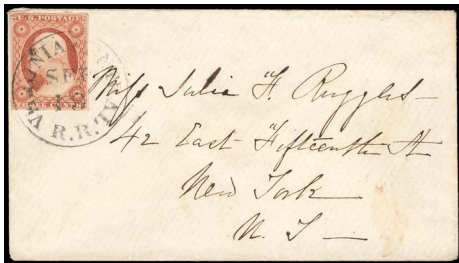 U.S. POSTAGE
THREE CENTS
SE
R.R.
VA
Miss Julia H. Ruggles
42 East Fifteenth St
New York
N. Y